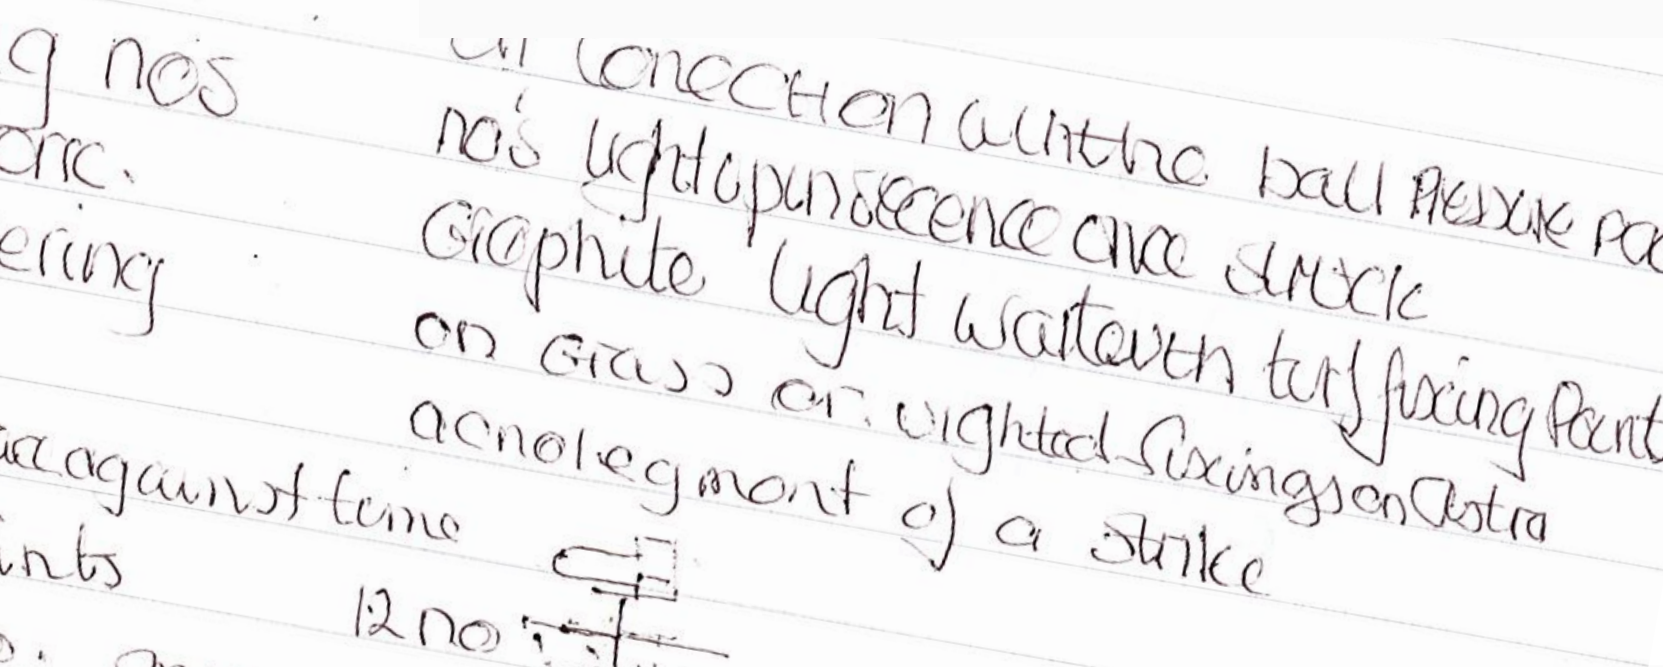 g nos
onc.
ering
against time
ints
in conection withthe ball Pressure
no's lightupinsecence once struck
Graphite light waitouth turf fixing Point
on Grass or wighted fixings on astra
acnolegmont of a strike
12 no